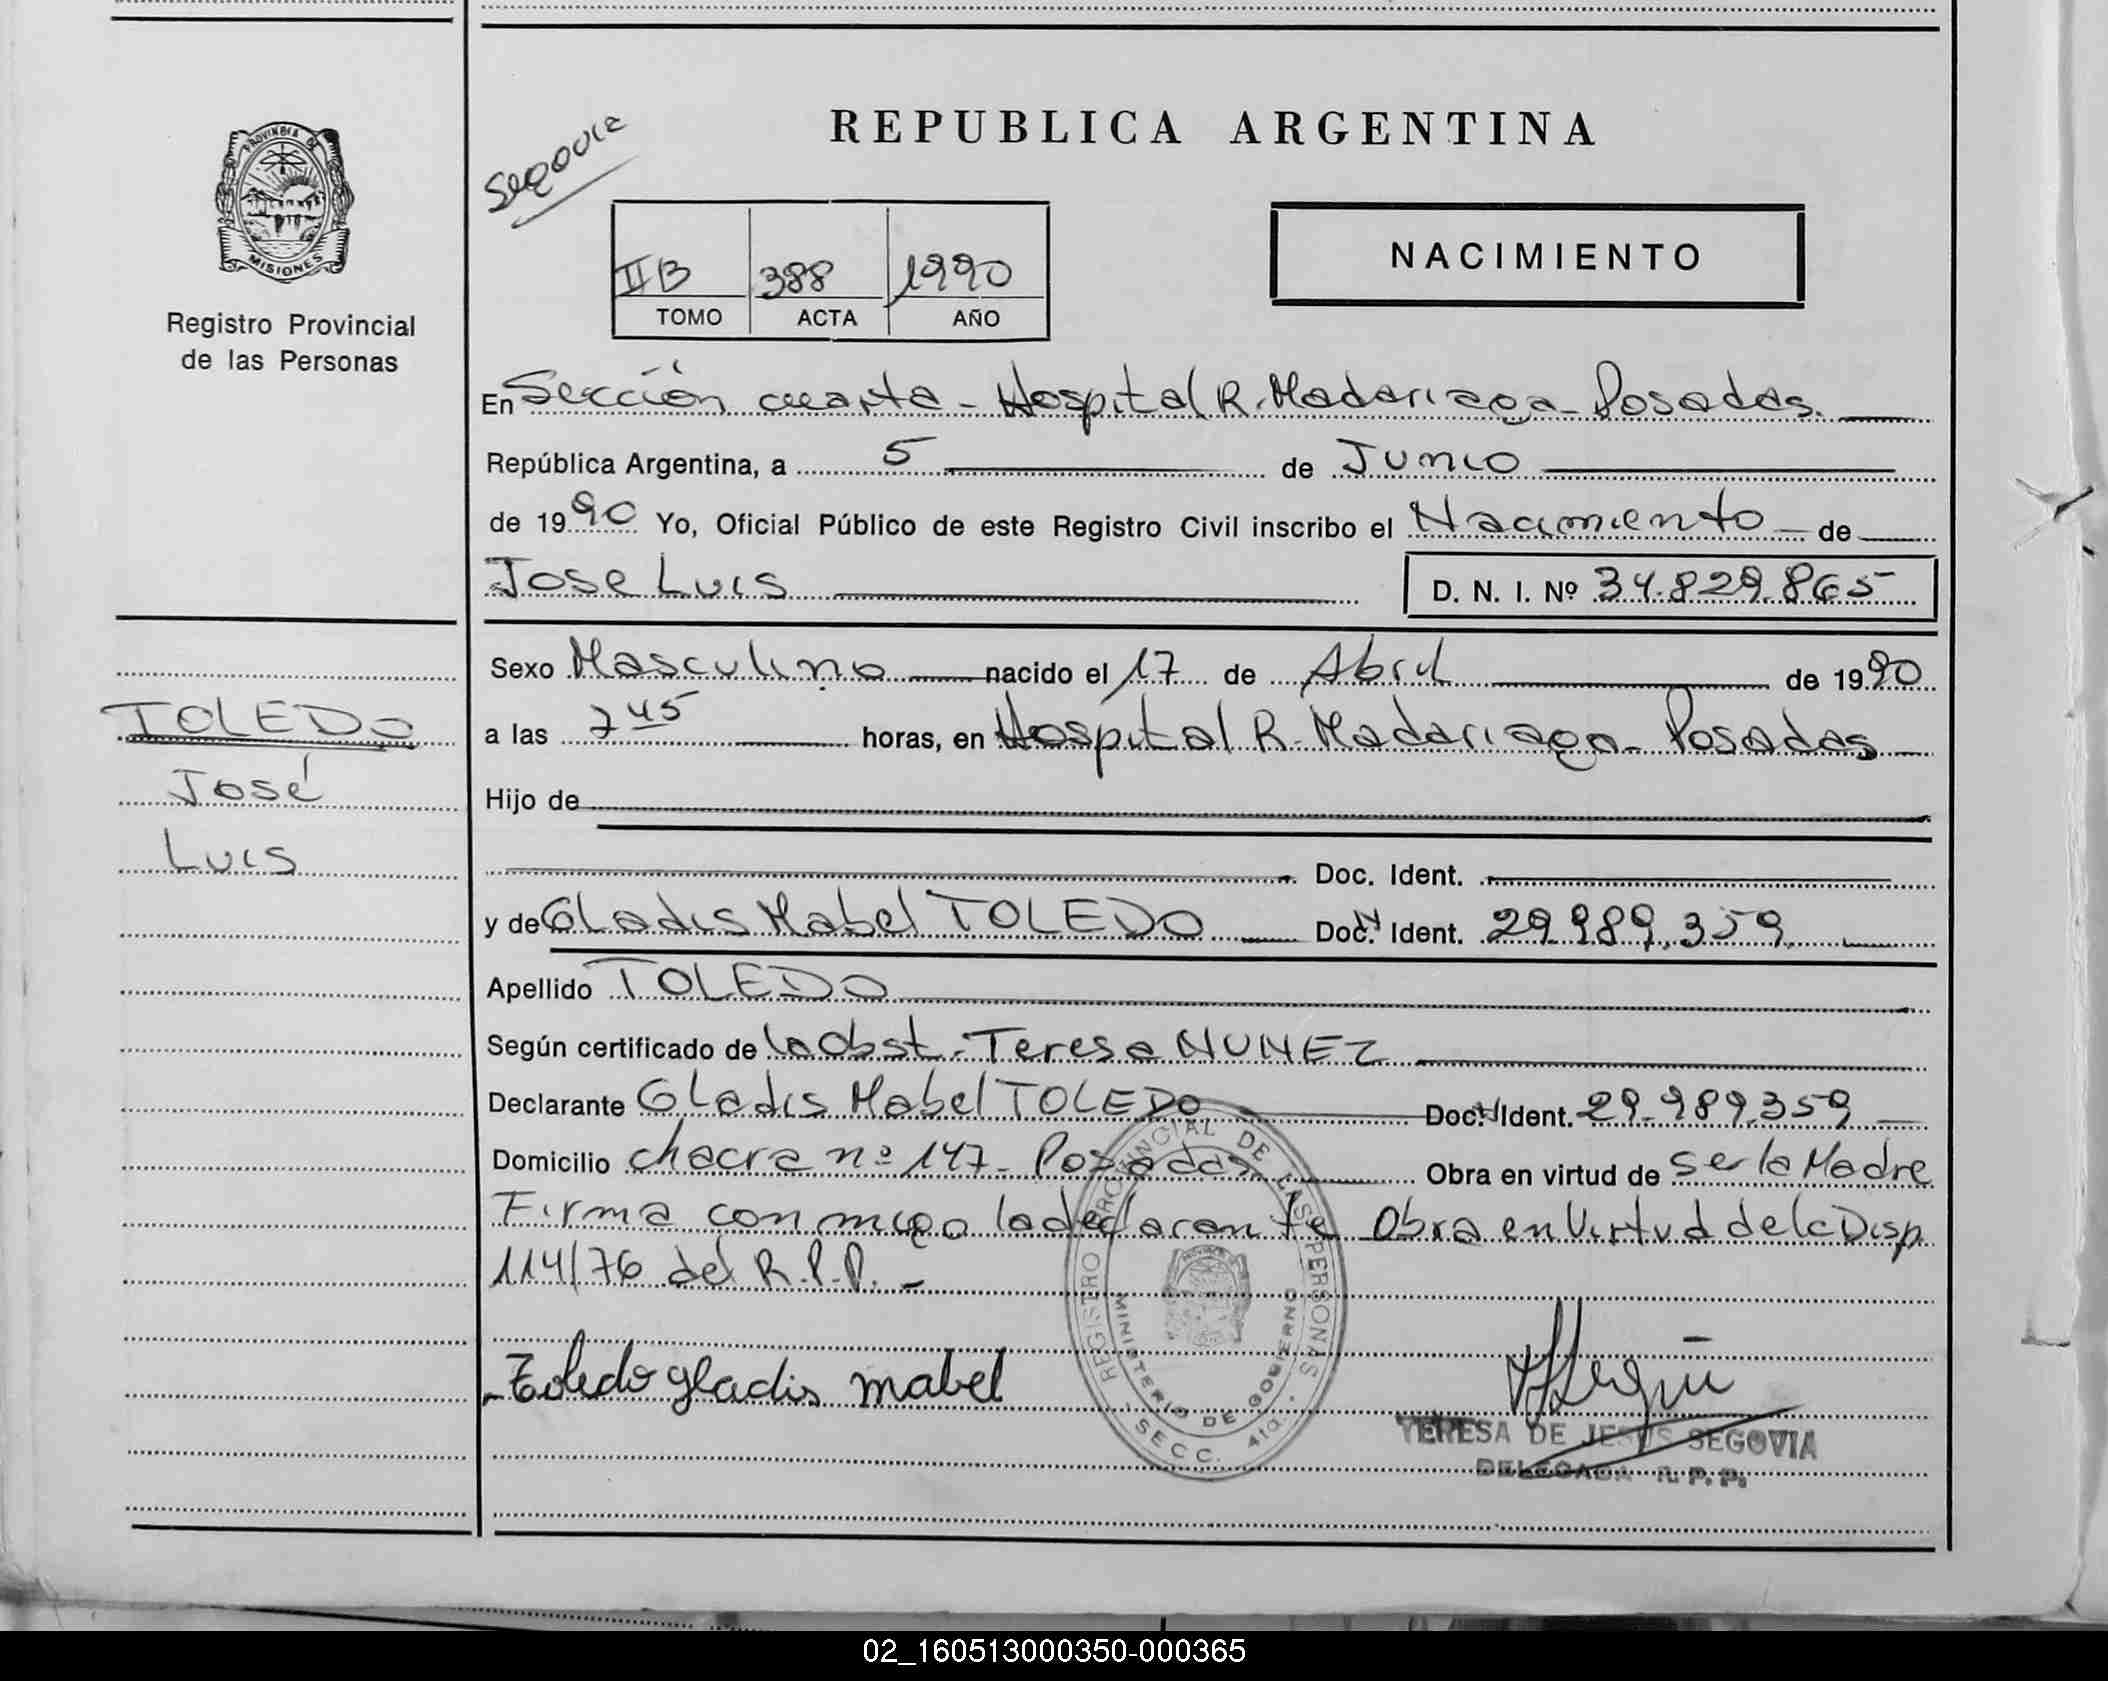 REPUBLICA ARGENTINA
Segovia
PROVINCIA DE
MISIONES
Registro Provincial
de las Personas
IIB 388 1990
TOMO ACTA AÑO
NACIMIENTO
En Sección cuarta - Hospital R. Madariaga - Posadas.
República Argentina, a 5 de Junio
de 1990 Yo, Oficial Público de este Registro Civil inscribo el Nacimiento de
Jose Luis D. N. I. Nº 34.829.865
Sexo Masculino nacido el 17 de Abril de 1990
a las 7 45 horas, en Hospital R. Madariaga - Posadas
Hijo de
Doc. Ident.
y de Gladis Mabel TOLEDO Doc. Ident. 29.989.359
Apellido TOLEDO
Según certificado de la Obst. Teresa NUNEZ
Declarante Gladis Mabel TOLEDO Doc. Ident. 29.989.359
Domicilio chacra nº 147 - Posadas Obra en virtud de ser la Madre
Firma conmigo la declarante Obra en Virtud de la Disp.
114/76 del R.P.P. -
TOLEDO
José
Luis
Toledo gladis mabel
REGISTRO PROVINCIAL DE LAS PERSONAS
MINISTERIO DE GOBIERNO
SECC. 4ta.
TERESA DE JESUS SEGOVIA
DELEGADA R. P. P.
02_160513000350-000365